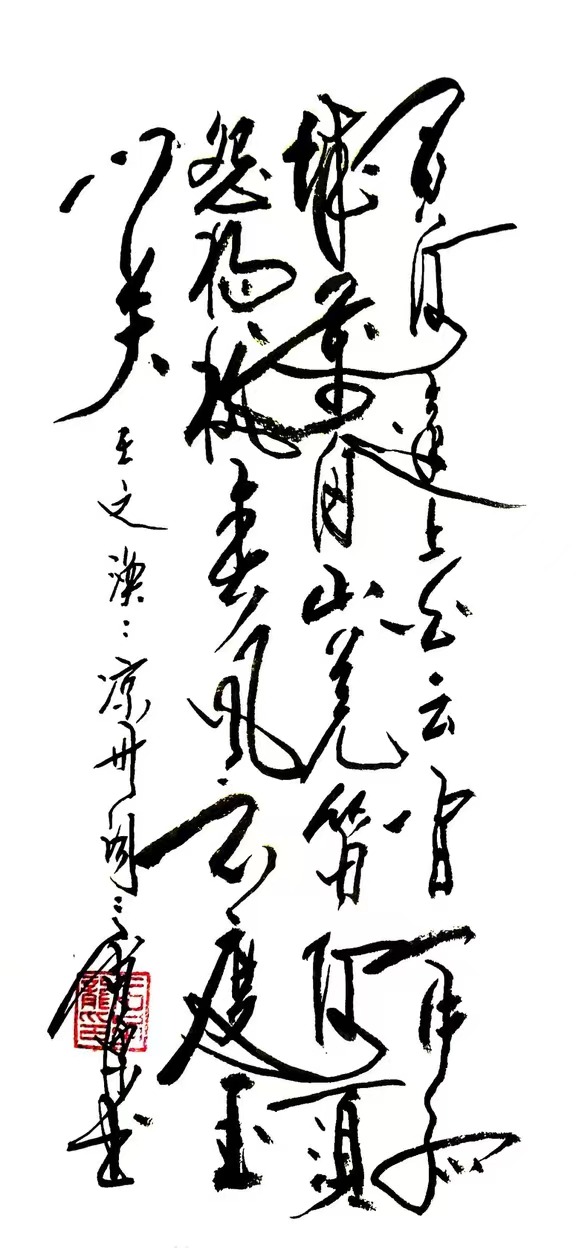 黄河遠上白云间一片孤
城萬仞山羌笛何須
怨杨柳春风不度玉
门关 王之涣凉州词